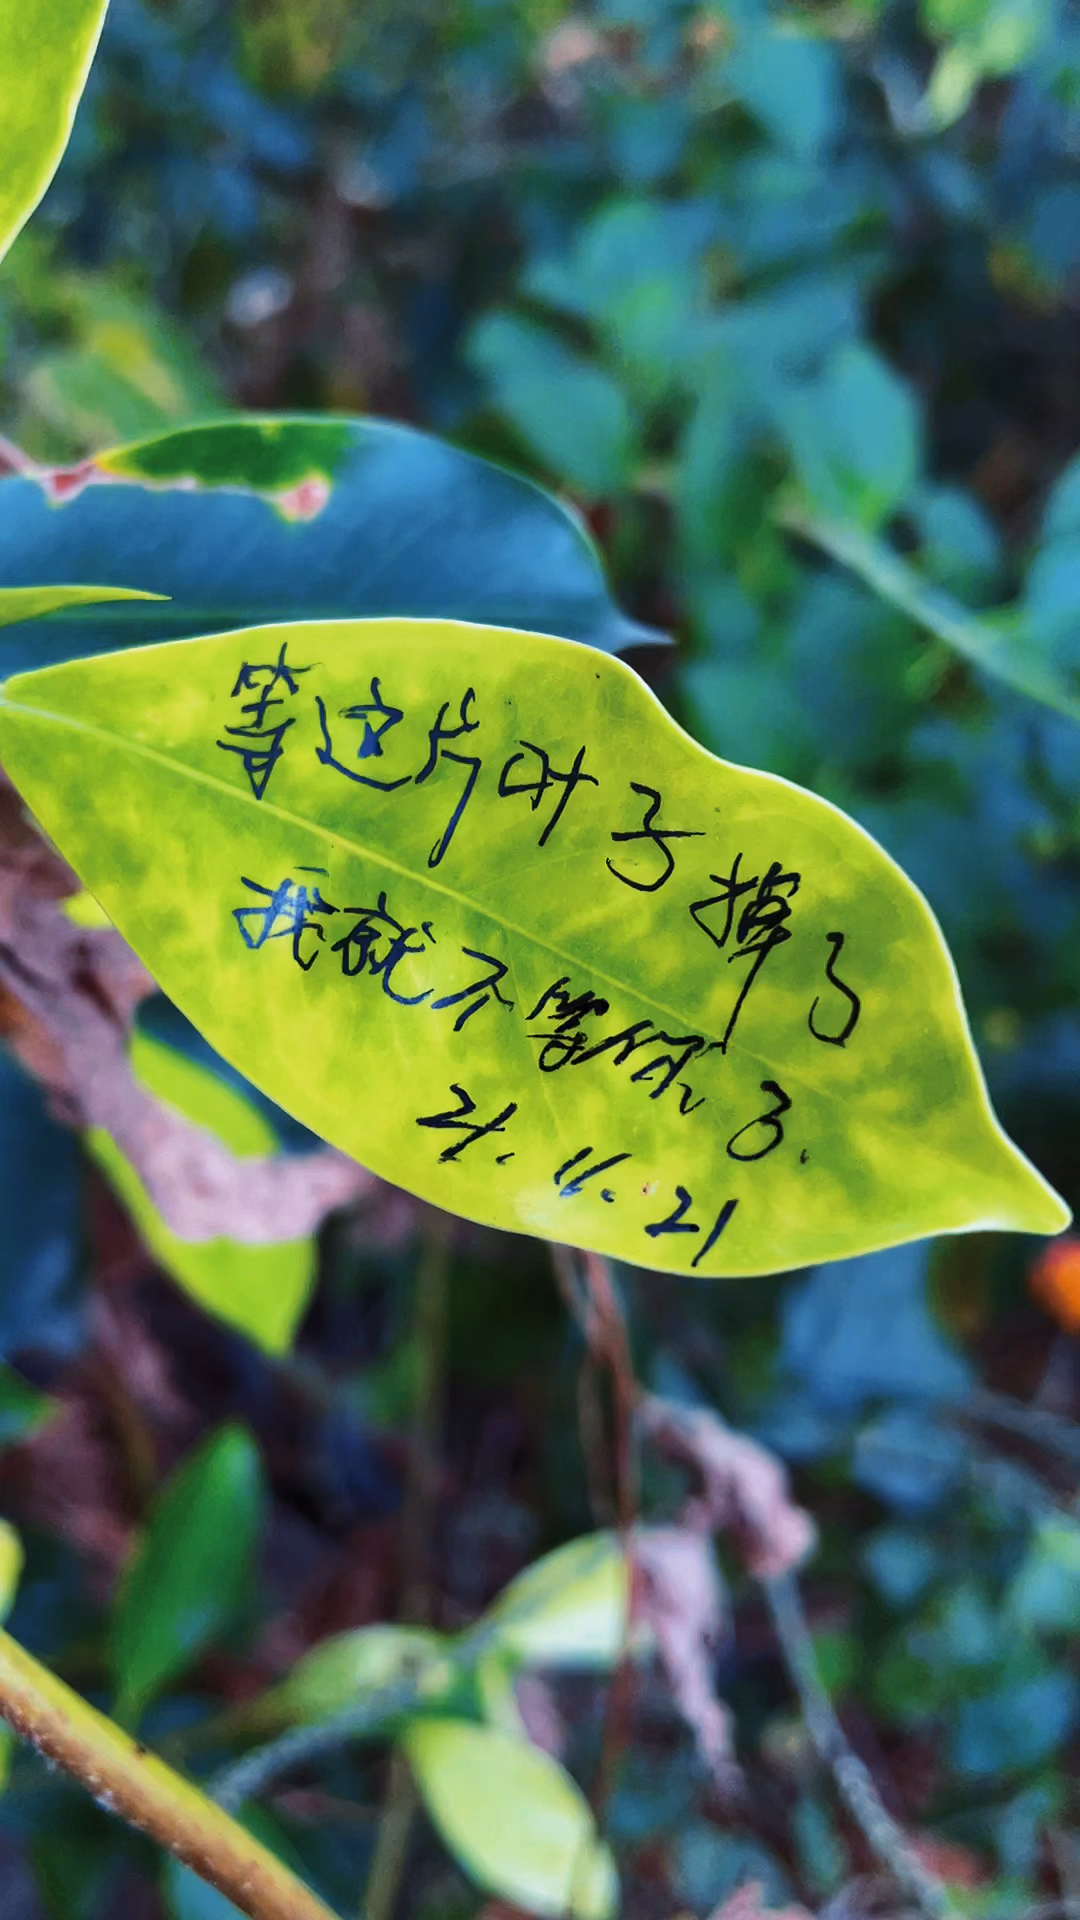 等这片叶子掉了
我就不等你了.
21.11.21